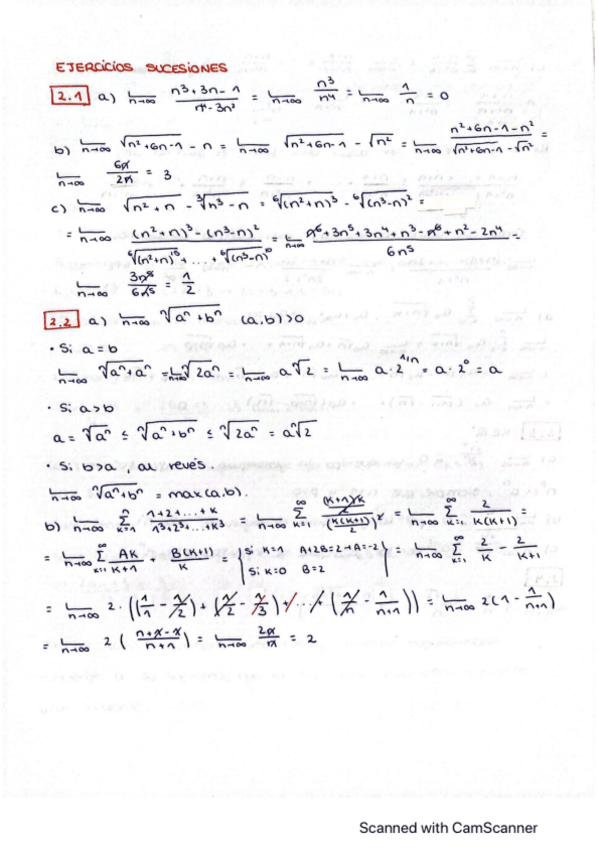 EJERCICIOS SUCESIONES
2.1 a) lim n→∞ (n³+3n-1)/(n⁴-3n²) = lim n→∞ n³/n⁴ = lim n→∞ 1/n = 0
b) lim n→∞ √(n²+6n-1) - n = lim n→∞ √(n²+6n-1) - √n² = lim n→∞ (n²+6n-1-n²)/(√(n²+6n-1) - √n²) =
lim n→∞ 6n/2n = 3
c) lim n→∞ √(n²+n) - ∛(n³-n) = ⁶√(n²+n)³ - ⁶√(n³-n)² =
= lim n→∞ ((n²+n)³ - (n³-n)²)/(⁶√(n²+n)¹⁵ + ... + ⁶√(n³-n)¹⁰) = lim n→∞ (n⁶+3n⁵+3n⁴+n³-n⁶+n²-2n⁴)/6n⁵ =
lim n→∞ 3n⁵/6n⁵ = 1/2
2.2 a) lim n→∞ ⁿ√(aⁿ+bⁿ) (a,b)>0
• Si a=b
lim n→∞ ⁿ√(aⁿ+aⁿ) = lim n→∞ ⁿ√(2aⁿ) = lim n→∞ a ⁿ√2 = lim n→∞ a·2^(1/n) = a·2⁰ = a
• Si a>b
a = ⁿ√aⁿ ≤ ⁿ√(aⁿ+bⁿ) ≤ ⁿ√(2aⁿ) = a ⁿ√2
• Si b>a, al revés.
lim n→∞ ⁿ√(aⁿ+bⁿ) = max(a,b).
b) lim n→∞ Σ k=1 n (1+2+...+k)/(1³+2³+...+k³) = lim n→∞ Σ k=1 ∞ ((k+1)k/2)/(k(k+1)/2)² = lim n→∞ Σ k=1 ∞ 2/(k(k+1)) =
= lim n→∞ Σ k=1 ∞ Ak/(k+1) + B(k+1)/k = | Si k=1 A+2B=2→A=-2 Si k=0 B=2 | = lim n→∞ Σ k=1 ∞ 2/k - 2/(k+1)
= lim n→∞ 2·((1/1 - 1/2) + (1/2 - 1/3) + / ... + (1/n - 1/(n+1))) = lim n→∞ 2(1 - 1/(n+1))
= lim n→∞ 2((n+1-1)/(n+1)) = lim n→∞ 2n/n = 2
Scanned with CamScanner